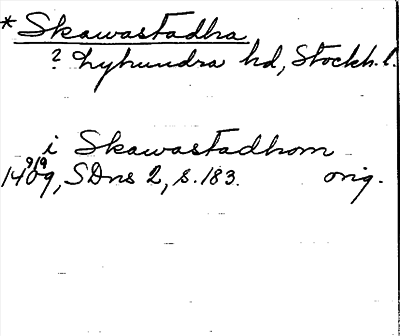 *Skawastadha
? Lyhundra hd, Stockh. l.
i Skawastadhom
1409 9/9, SDns 2, s. 183. orig.